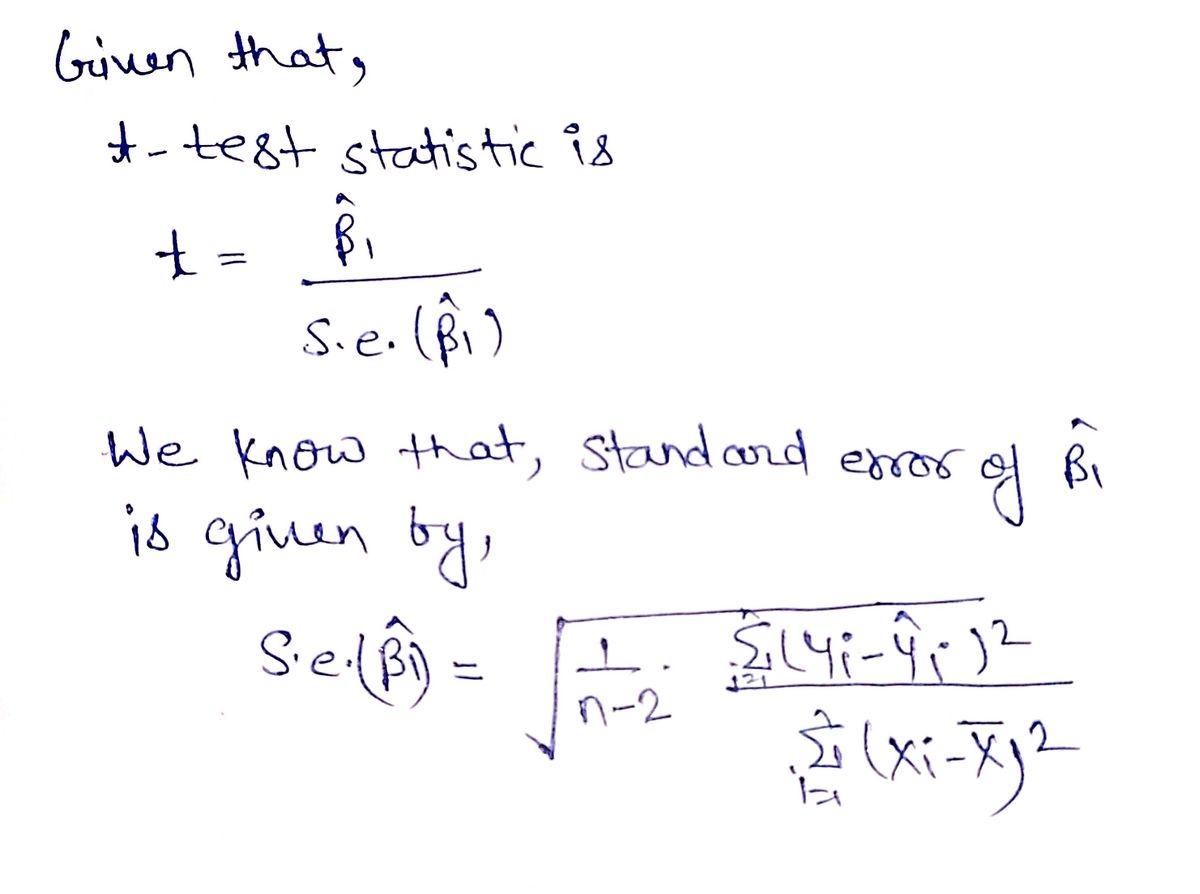 Given that,
t-test statistic is
t = β̂₁ / S.e.(β̂₁)
We know that, Standard error of β̂₁
is given by,
S.e.(β̂₁) = √(1/(n-2) · Σᵢ₌₁ⁿ(yᵢ-ŷᵢ)² / Σᵢ₌₁ⁿ(xᵢ-x̄)²)